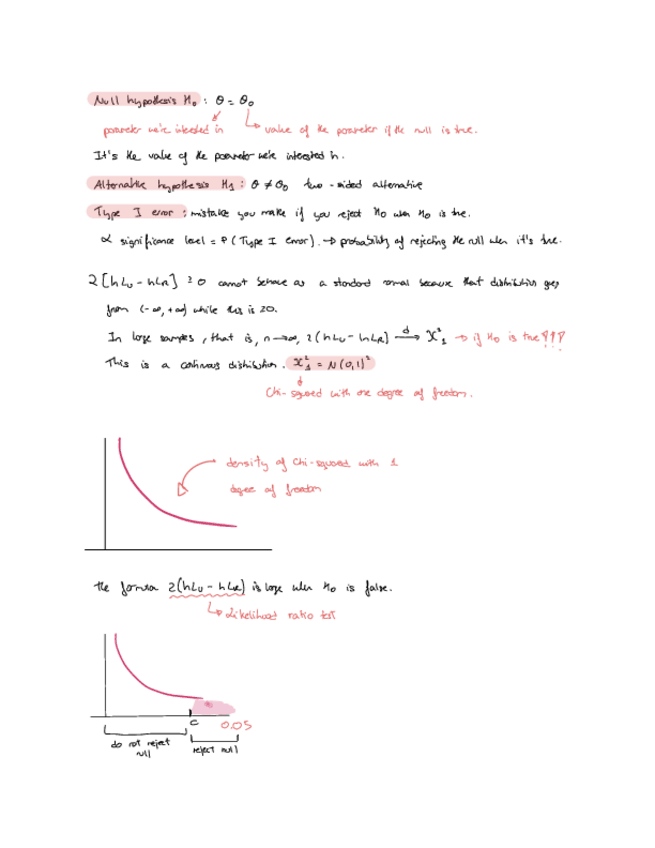 Null hypothesis H₀ : θ = θ₀
parameter we're interested in → value of the parameter if the null is true.
It's the value of the parameter we're interested in.
Alternative hypothesis H₁ : θ ≠ θ₀ two-sided alternative
Type I error : mistake you make if you reject H₀ when H₀ is true.
α significance level = P(Type I error). → probability of rejecting the null when it's true.
2[hLu - hLR] ≥ 0 cannot behave as a standard normal because that distribution goes
from (-∞, +∞) while this is ≥0.
In large samples, that is, n→∞, 2(hLu - hLR) →d χ²₁ → if H₀ is true!!!
This is a continuous distribution. χ²₁ = N(0,1)²
Chi-squared with one degree of freedom.
density of Chi-squared with 1
degree of freedom
the formula 2(hLu - hLR) is large when H₀ is false.
→ Likelihood ratio test
C 0.05
do not reject null
reject null